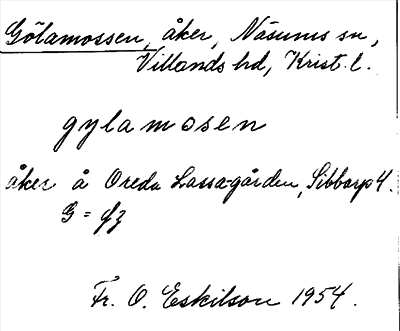 Gölamossen, åker, Näsums sn,
Villands hd, Krist. l.
gylamosen
åker å Oreda Lassagården, Sibbarp 4.
G =
Fr. O. Eskilson 1954.